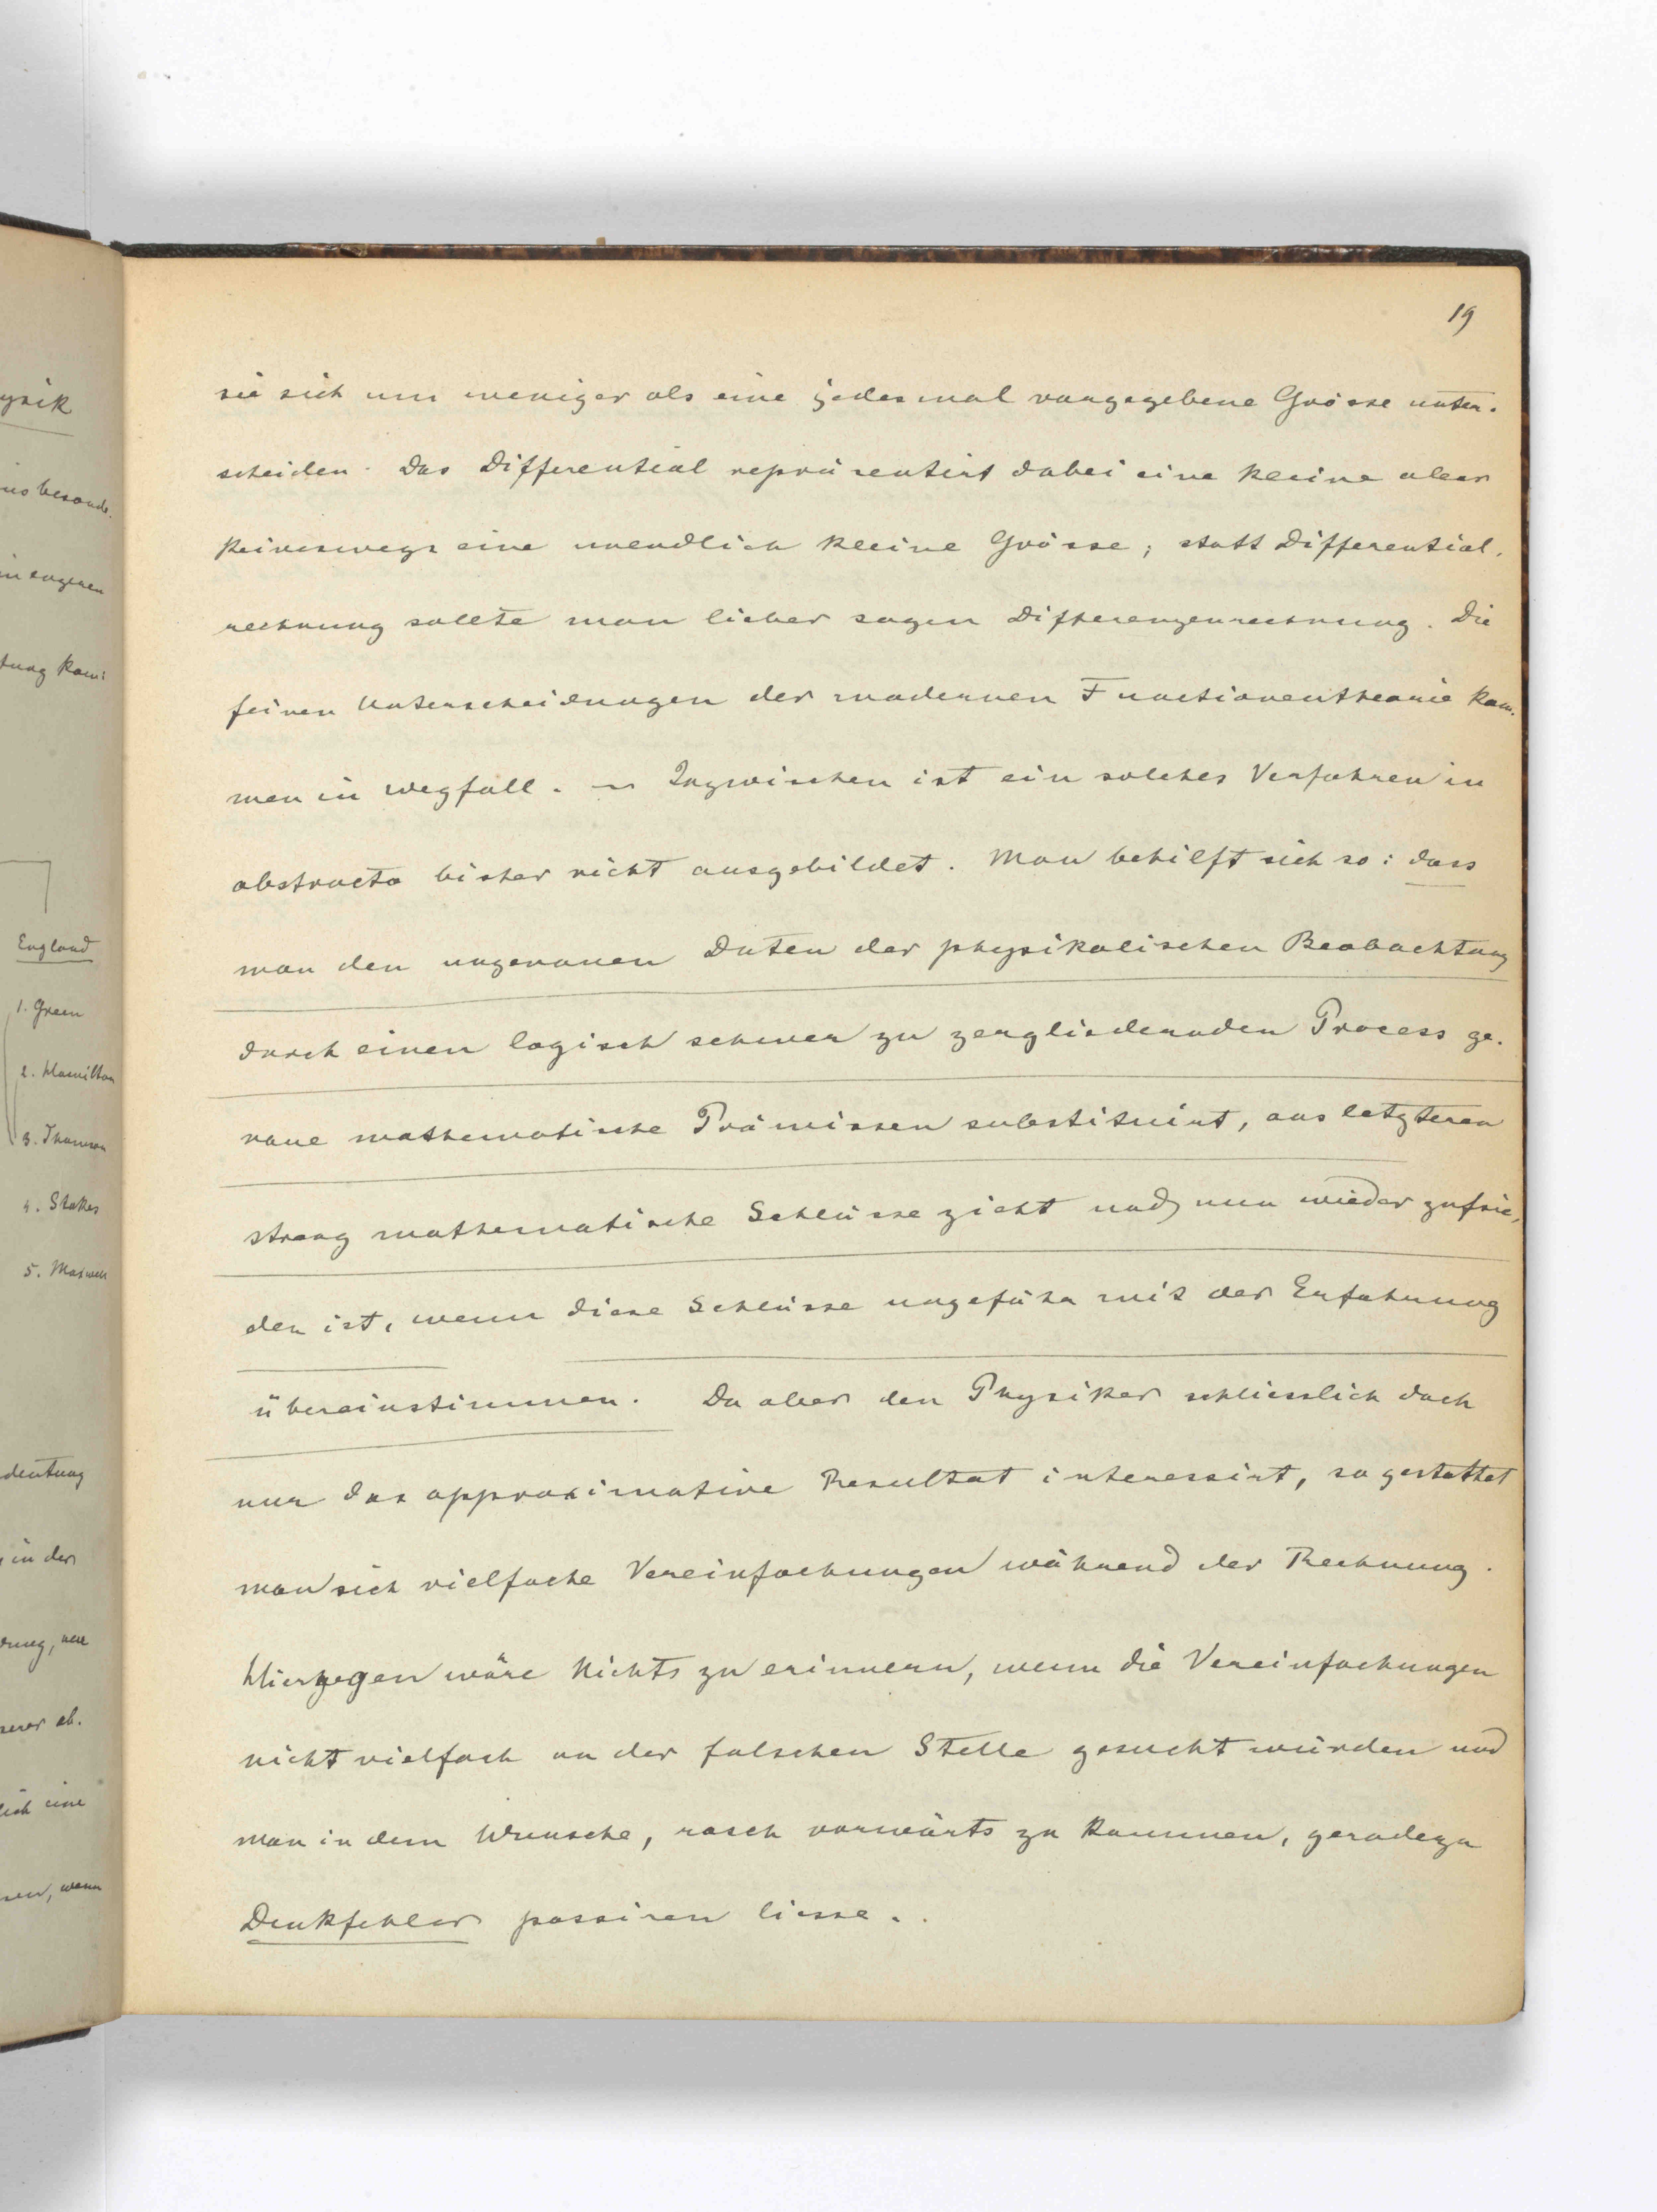 ysik
ins besonde.
in engeren
tung kom:
England
1. Green
2. Hamilton
3. Thomson
4. Stokes
5. Maxwell
deutung
in der
ab.
lich eine
wenn
19
sie sich um weniger als eine jedesmal vorgegebene Grösse unter-
scheiden. Das Differential repräsentirt dabei eine kleine aber
keineswegs eine unendlich kleine Grösse; statt Differential-
rechnung sollte man lieber sagen Differenzenrechnung. Die
feinen Unterscheidungen der modernen Functionentheorie kom-
men in Wegfall. – Inzwischen ist ein solches Verfahren in
abstracto bisher nicht ausgebildet. Man behilft sich so: dass
man den ungenauen Daten der physikalischen Beobachtung
durch einen logisch schwer zu zergliedernden Process ge-
naue mathematische Prämissen substituirt, aus letzteren
streng mathematische Schlüsse zieht und nun wieder zufrie-
den ist, wenn diese Schlüsse ungefähr mit der Erfahrung
übereinstimmen. Da aber den Physiker schliesslich doch
nur das approximative Resultat interessirt, so gestattet
man sich vielfache Vereinfachungen während der Rechnung.
Hiergegen wäre Nichts zu erinnern, wenn die Vereinfachungen
nicht vielfach an der falschen Stelle gesucht würden und
man in dem Wunsche, rasch vorwärts zu kommen, geradezu
Denkfehler passiren liesse.